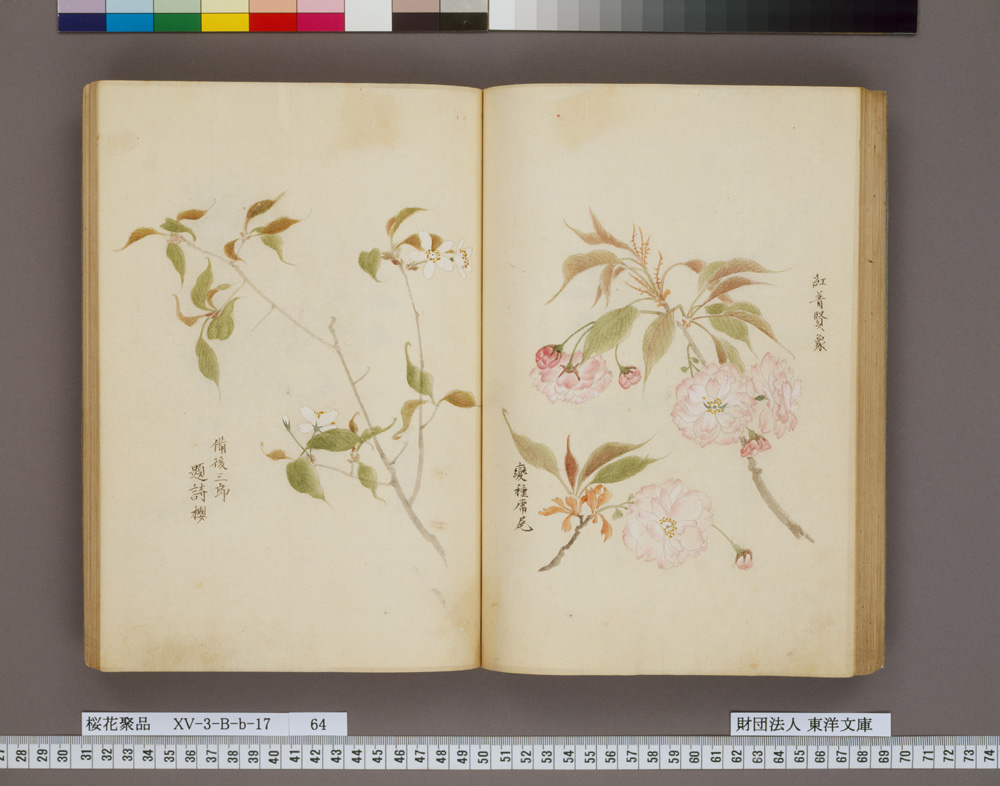 紅普賢象
變種虎尾
備後三郎
題詩櫻
桜花聚品 XV-3-B-b-17 64
財団法人 東洋文庫
27 28 29 30 31 32 33 34 35 36 37 38 39 40 41 42 43 44 45 46 47 48 49 50 51 52 53 54 55 56 57 58 59 60 61 62 63 64 65 66 67 68 69 70 71 72 73 74